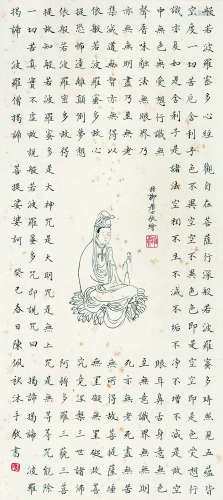 般若波羅蜜多心經 觀自在菩薩行深般若波羅蜜多時照見五蘊皆
空度一切苦厄舍利子色不異空空不異色色即是空空即是色受想行
識亦復如是舍利子是諸法空相不生不滅不垢不淨不增不減是故空
中無色無受想行識無眼耳鼻舌身意無色
聲香味觸法無眼界乃至無意識界無無明
亦無無明盡乃至無老死亦無老死盡無苦
集滅道無智亦無得以無所得故菩提薩埵
依般若波羅蜜多故心無罣礙無罣礙故
無有恐怖遠離顛倒夢想究竟涅槃三世諸佛
依般若波羅蜜多故得阿耨多羅三藐三菩
提故知般若波羅蜜多是大神咒是大明咒是無上咒是無等等咒能除
一切苦真實不虛故說般若波羅蜜多咒即說咒曰 揭諦揭諦 波羅
揭諦 波羅僧揭諦 菩提娑婆訶 癸巳春日陳佩秋沐手敬書
敬繪